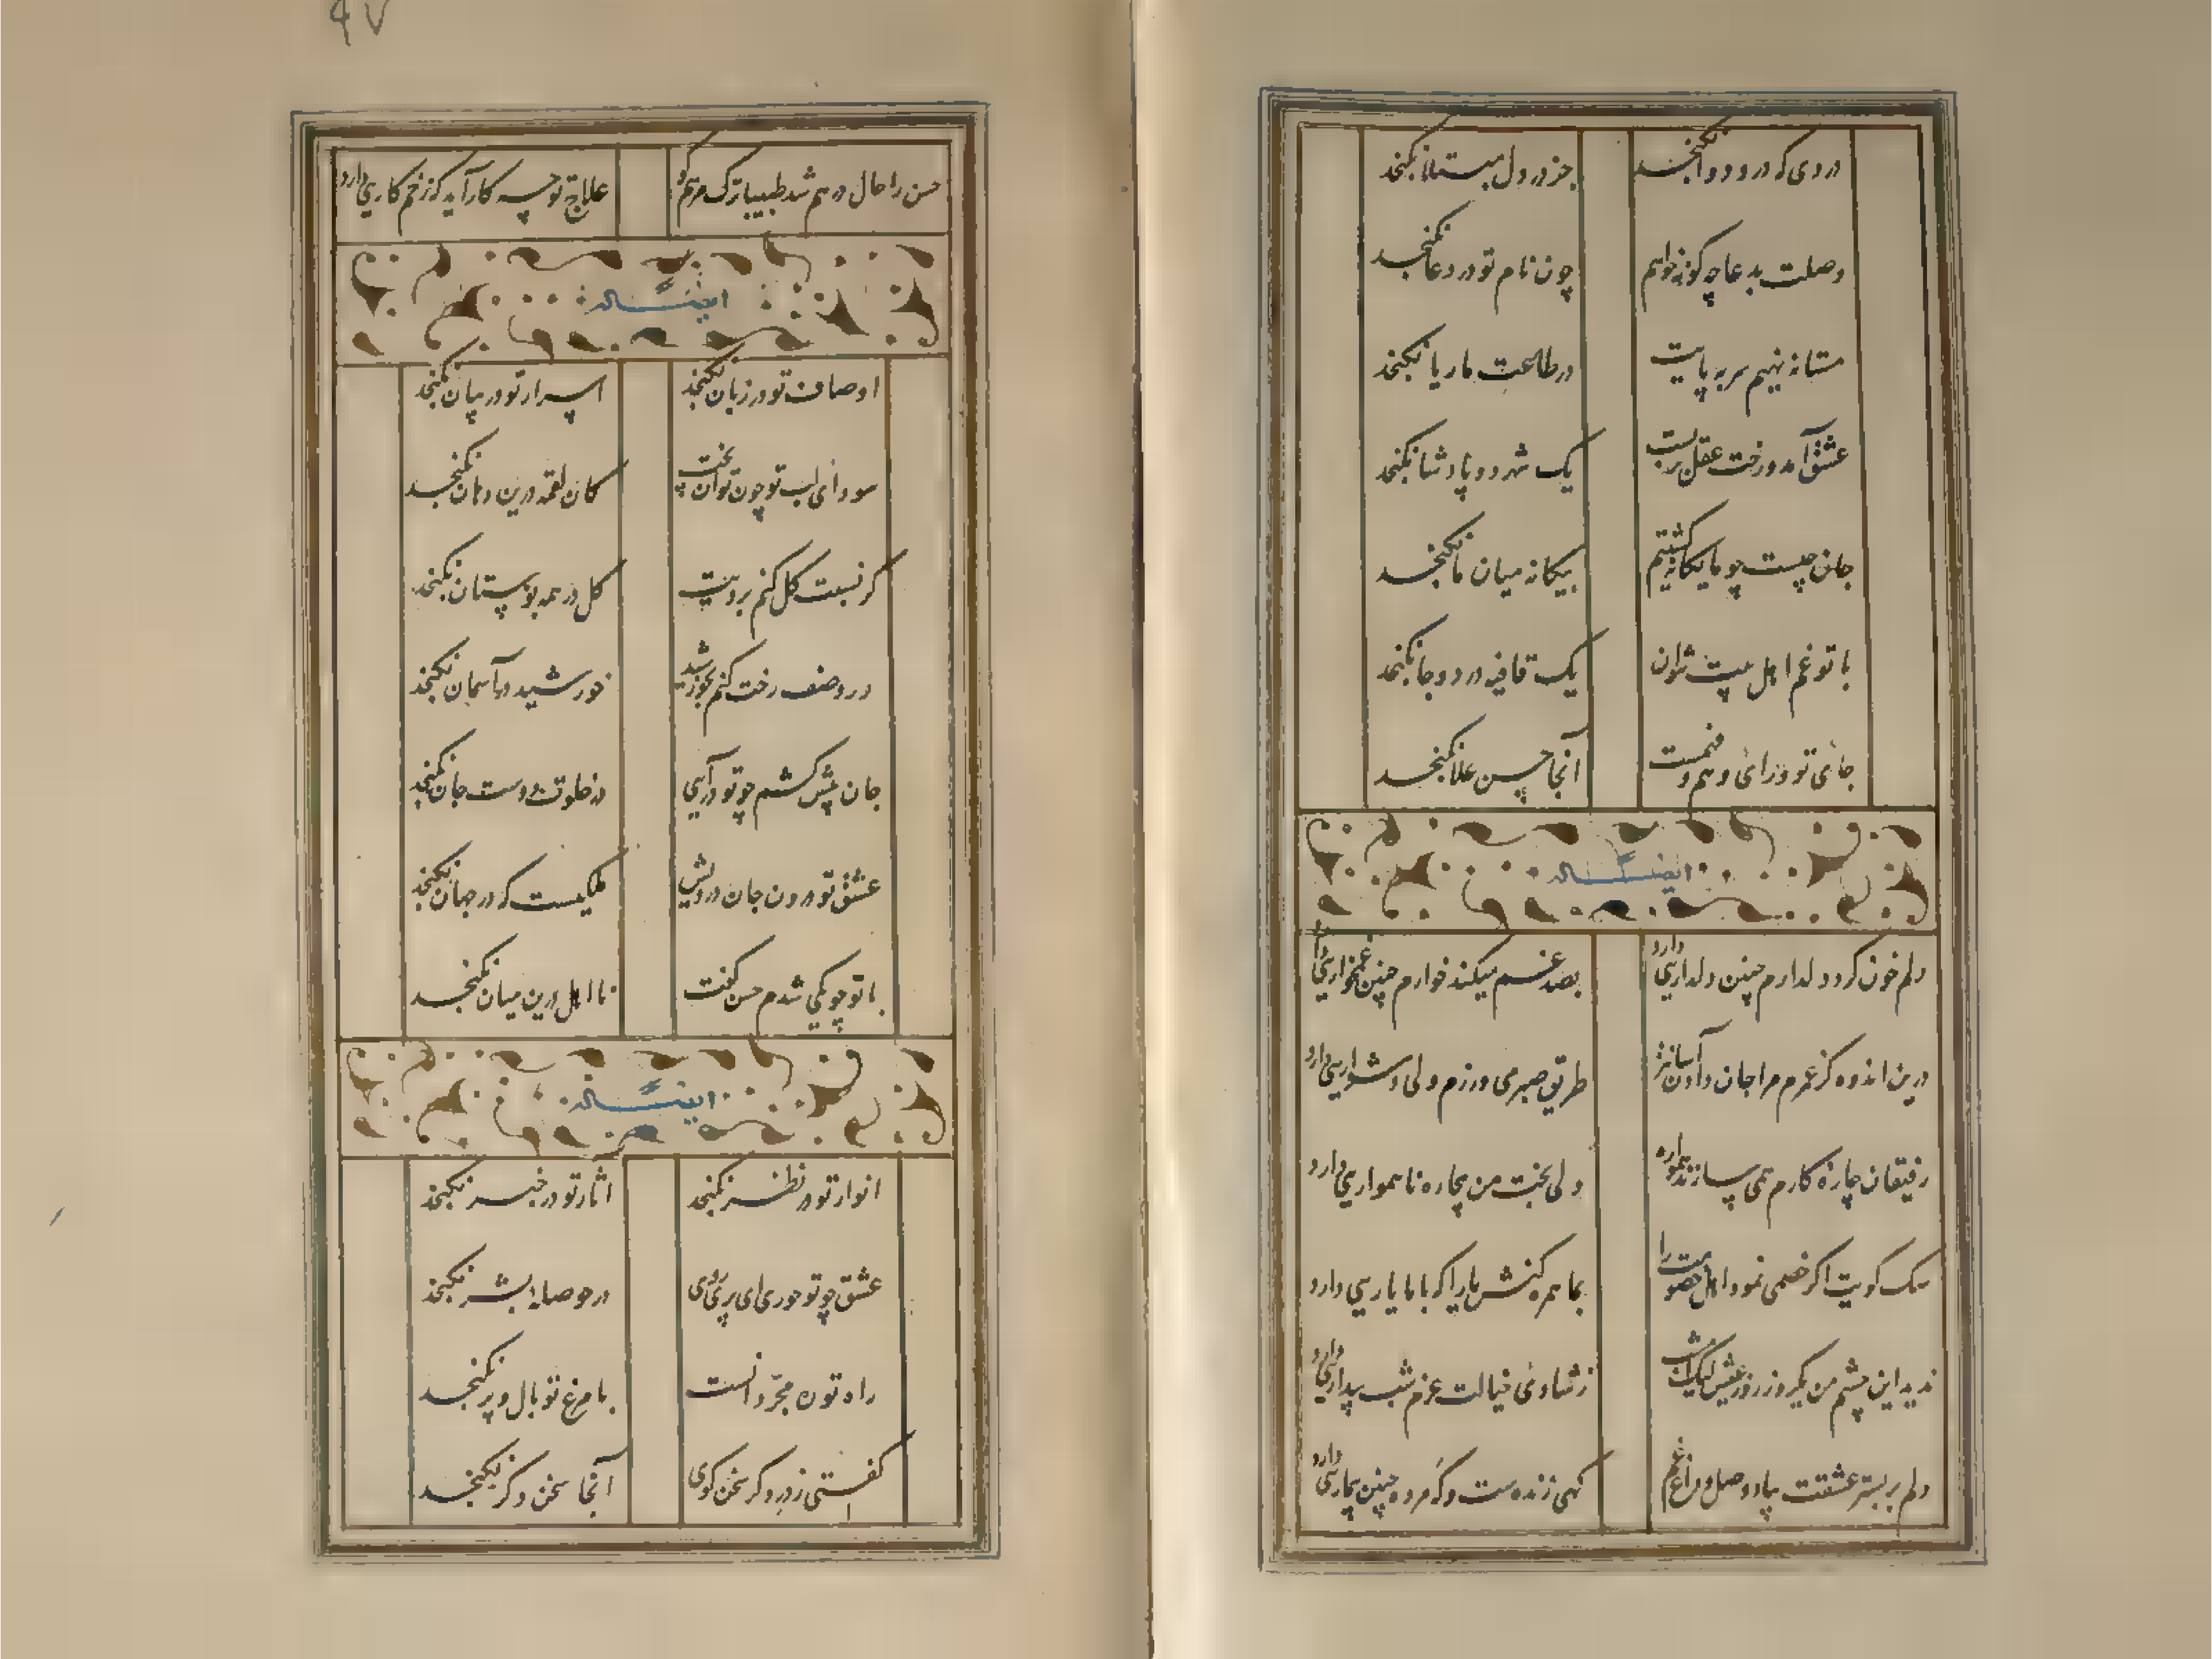 دردی که درو دوا نگنجد
جز در دل مبتلا نگنجد
وصلت بدعا چگونه خواهم
چون نام تو در دعا نگنجد
مستانه نهیم سر به پایت
در طاعت ما ریا نگنجد
عشق آمد و رخت عقل بر بست
یک شهر دو پادشا نگنجد
جان چیست چو ما یگانه گشتیم
بیگانه میان ما نگنجد
با تو غم اهل بیت نتوان
یک قافیه در دو جا نگنجد
جای تو ورای وهم و فهمست
آنجا حسن علا نگنجد
ایضا له
دلم خون کرد دلدارم چنین دلداریی دارد
بصد غم میکند خوارم چنین غمخواریی دارد
درین اندوه کز عمرم مرا جان دادن آسانتر
طریق صبر می ورزم ولی دشواریی دارد
رفیقان چارهٔ کارم نمی سازند همواره
ولی بخت من بیچاره ناهمواریی دارد
سک کویت اگر خصمی نمود اهل خصومت را
بما همره کنش یارا که با ما یاریی دارد
ندید این چشم من یکروز روز عیش لیکن شب
ز شادی خیالت عزم شب بیداریی دارد
دلم بر بستر عشقت بیاد وصل و داغ غم
کهی زنده ست و گه مرده چنین بیماریی دارد
۹۷
حسن را حال درهم شد طبیبا ترک مرهم گو
علاج تو چه کار آید که زخم کاریی دارد
ایضا له
اوصاف تو در زبان نگنجد
اسرار تو در بیان نگنجد
سودای لب تو چون توان پخت
کان لقمه درین دهان نگنجد
گر نسبت گل کنم برویت
گل در همه بوستان نگنجد
در وصف رخت کنم بخورشید
خورشید در آسمان نگنجد
جان پیش کشم چو تو درآیی
در خلوت دوست جان نگنجد
عشق تو درون جان درویش
ملکیست که در جهان نگنجد
با تو چو یکی شدم حسن گفت
نا اهل درین میان نگنجد
ایضا له
انوار تو در نظر نگنجد
اثار تو در خبر نگنجد
عشق چو تو حوری ای پری روی
در حوصلهٔ بشر نگنجد
راه تو ن مجرد انست
با مرغ تو بال و پر نگنجد
گفتی ز در دگر سخن گوی
آنجا سخن دگر نگنجد